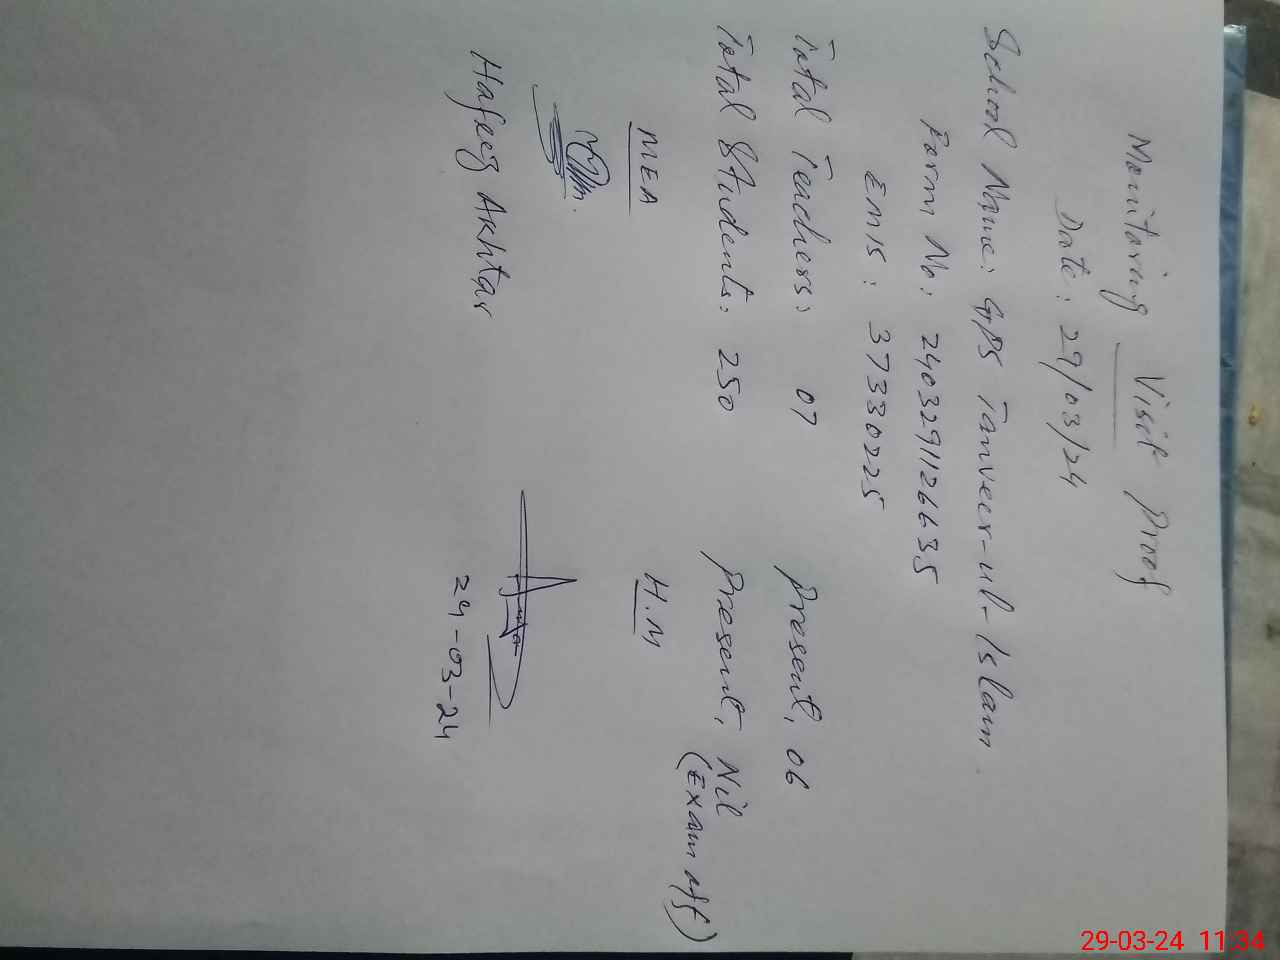 Monitoring Visit Proof
Date: 29/03/24
School Name: GPS Tanveer-ul-Islam
Form No: 2403291126635
EMIS: 37330225
Total Teachers: 07 Present, 06
Total Students: 250 Present, Nil
(Exam off)
MEA H.M
Hafeez Akhtar
29-03-24
29-03-24 11:34